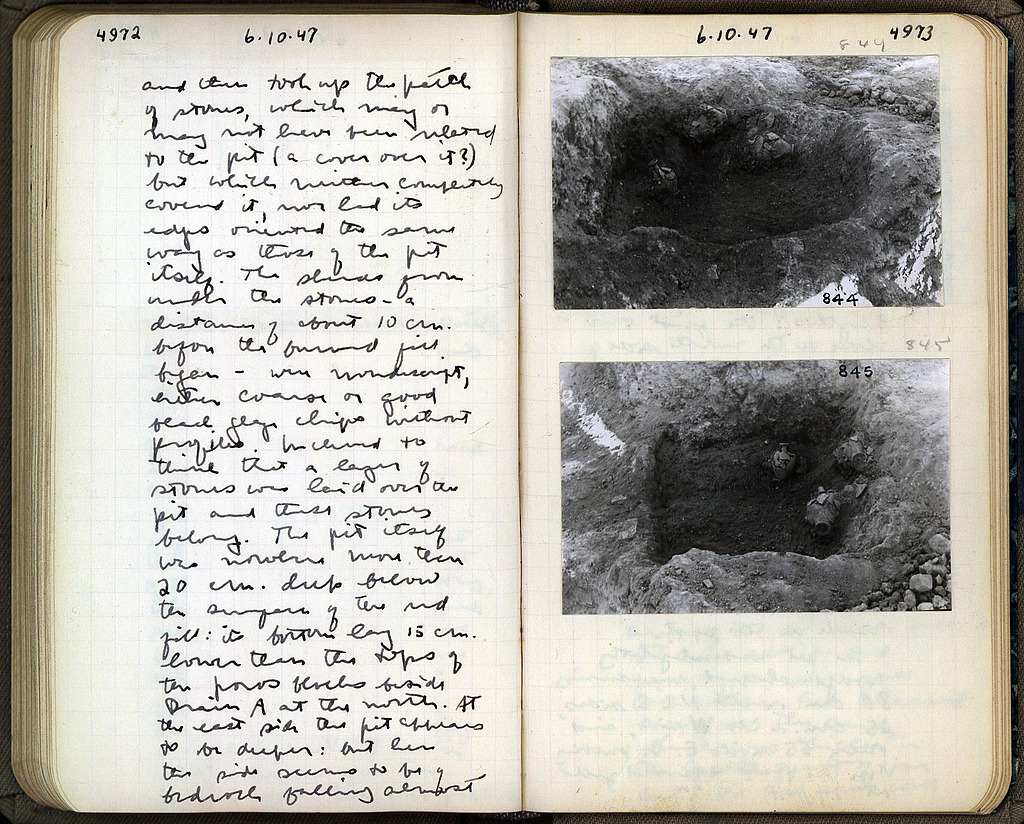 4972
6.10.47
and then took up the patch
of stones, which may or
may not have been related
to the pit (a cover over it?)
but which neither completely
covered it, nor had its
edges oriented the same
way as those of the pit
itself. The sherds from
under the stones - a
distance of about 10 cm.
before the burned fill
began - were nondescript,
either coarse or good
black glaze chips without
profiles. Inclined to
think that a layer of
stones was laid over the
pit and these stones
belong. The pit itself
was nowhere more than
20 cm. deep below
the surface of the red
fill: its bottom lay 15 cm.
lower than the tops of
the poros blocks beside
Drain A at the north. At
the east side the pit appears
to be deeper: but here
the side seems to be of
bedrock falling almost
6.10.47
4973
844
844
845
845